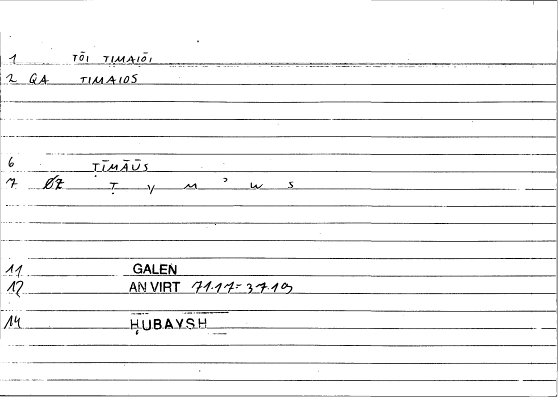 1 TŌI TIMAIŌI
2 QA TIMAIOS
6 ṬĪMĀŪS
7 ØZ Ṭ y m ʾ w s
11 GALEN
12 AN VIRT
14 ḤUBAYSH